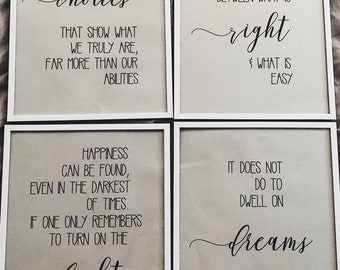 choices
THAT SHOW WHAT
WE TRULY ARE,
FAR MORE THAN OUR
ABILITIES.
BETWEEN WHAT IS
right
& WHAT IS
EASY.
HAPPINESS
CAN BE FOUND,
EVEN IN THE DARKEST
OF TIMES.
IF ONE ONLY REMEMBERS
TO TURN ON THE
light
IT DOES NOT
DO TO
DWELL ON
dreams